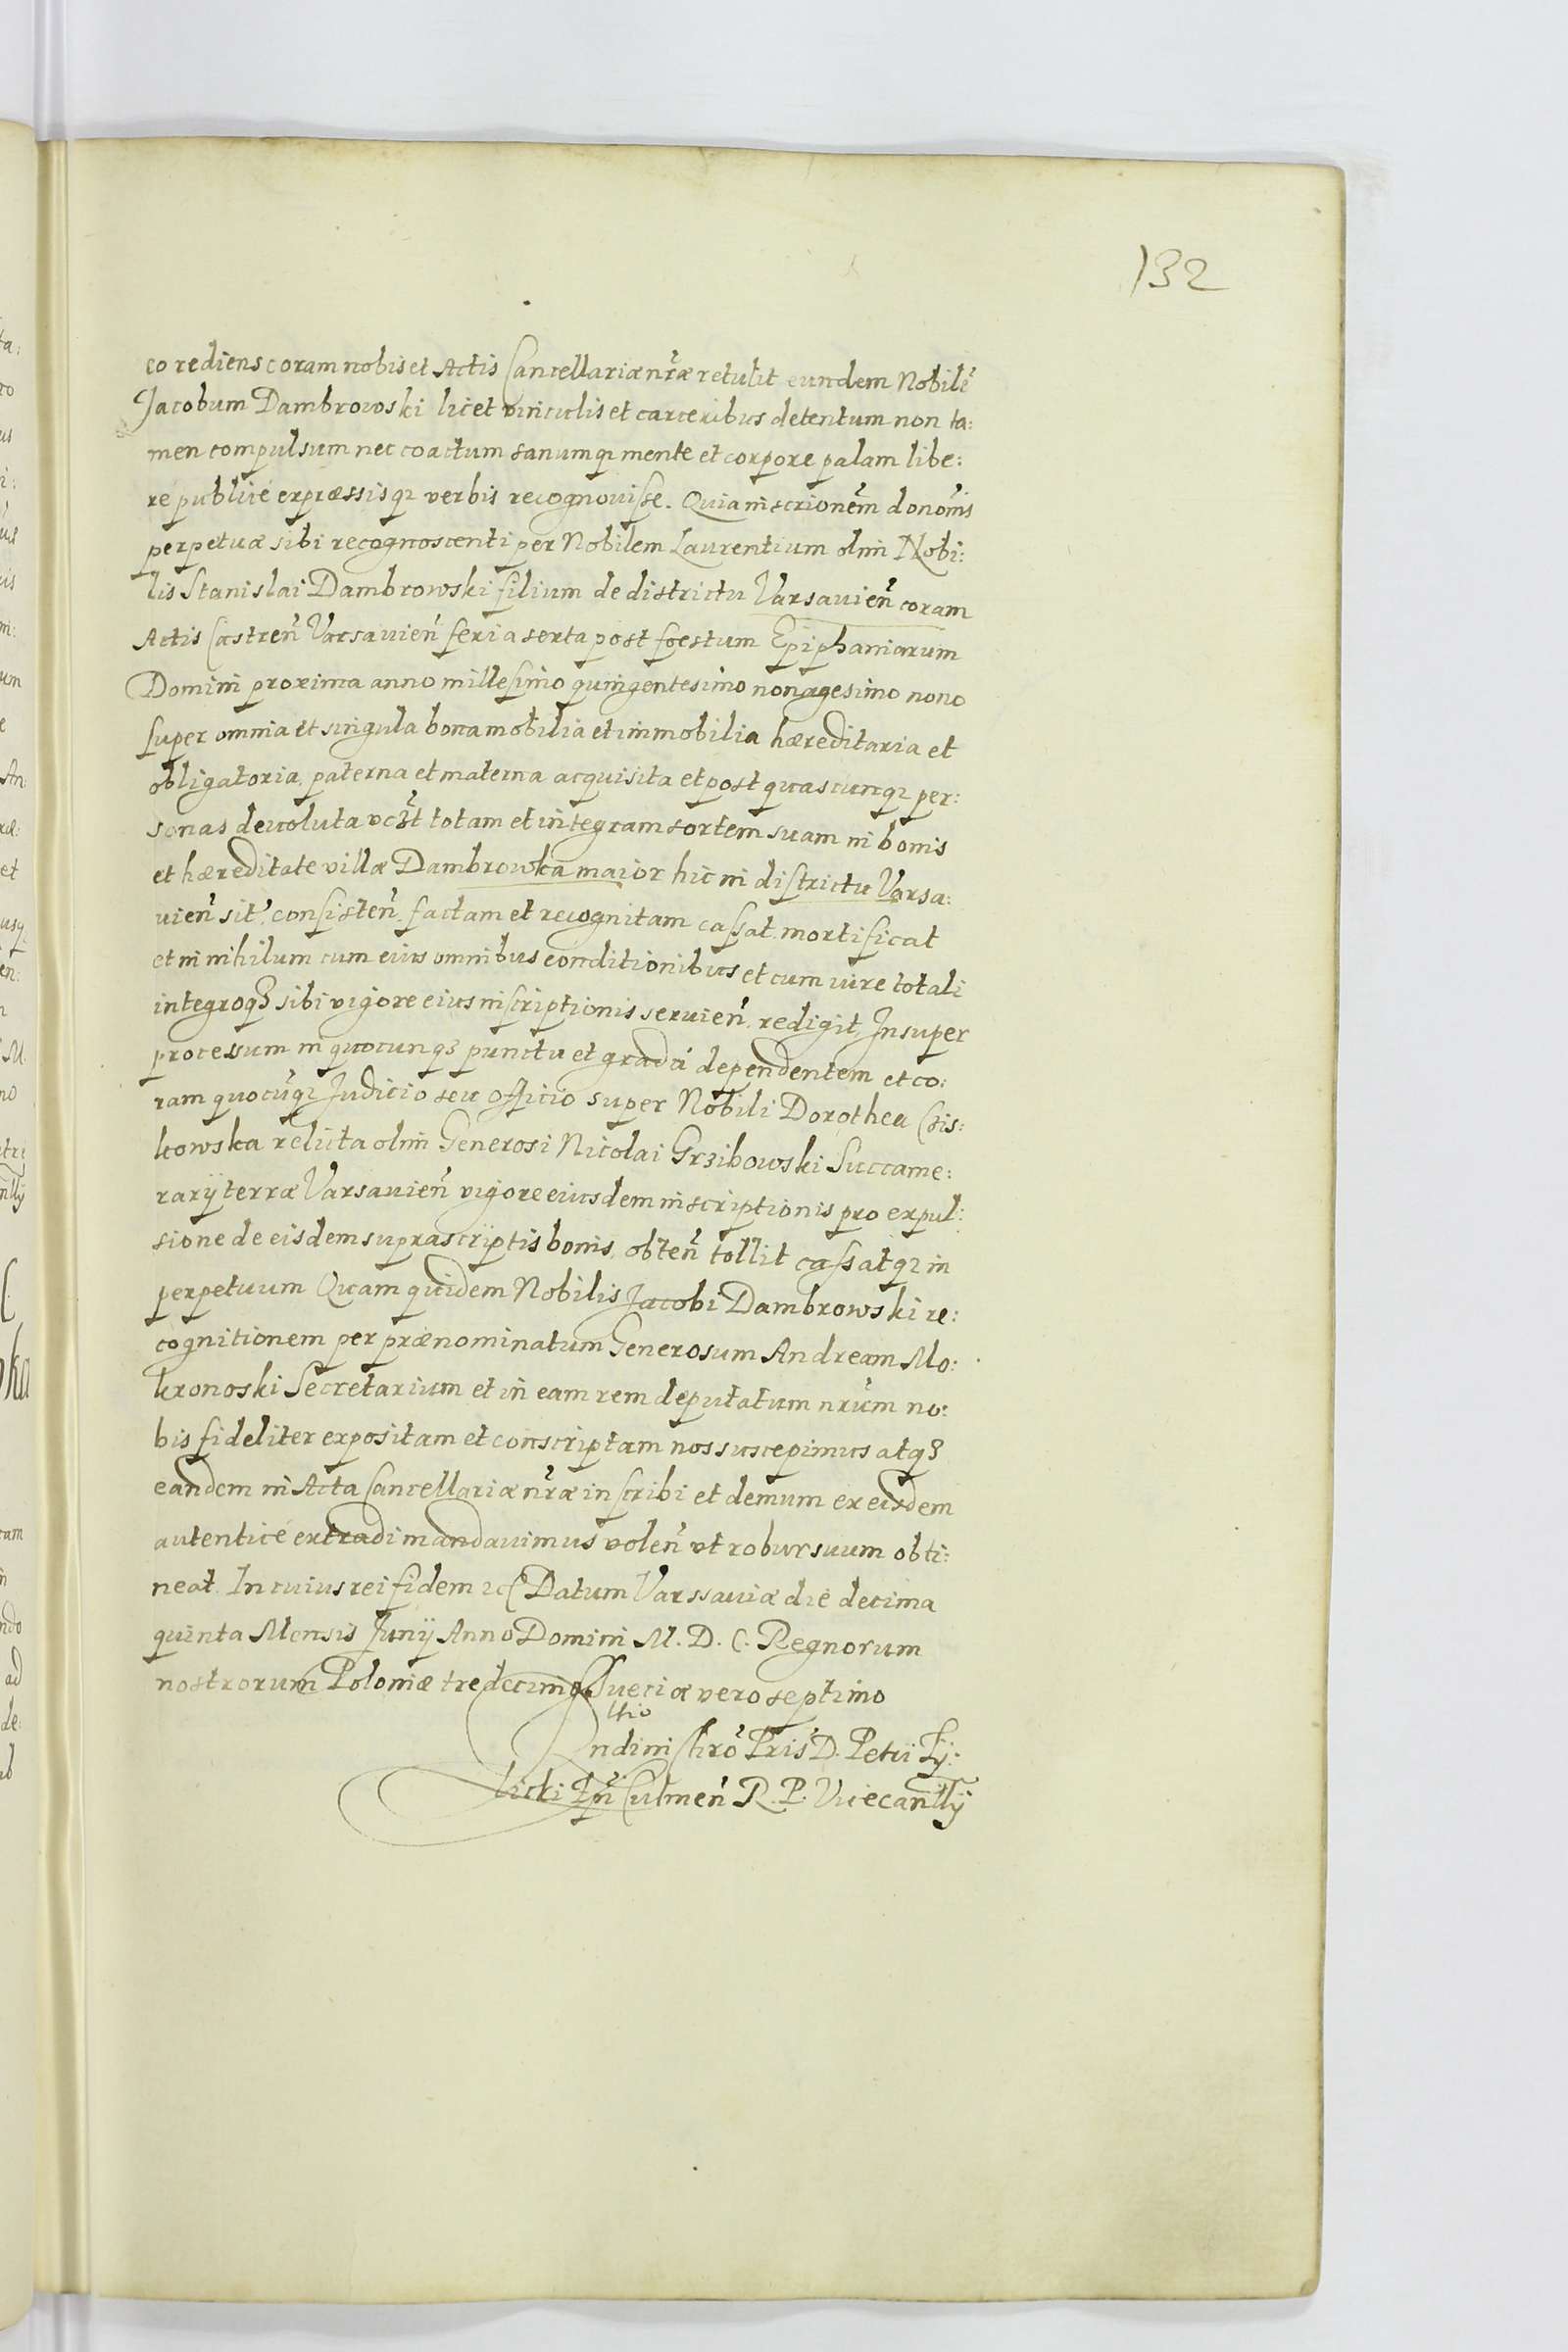 132
co rediens coram nobis et Actis Cancellariæ nr̃æ retulit eundem Nobilẽ
Jacobum Dambrowski licet vinculis et carceribus detentum non ta:
men compulsum nec coactum sanumqꝫ mente et corpore palam libe:
rè publicè expræssisqꝫ verbis recognouisse. Quia inscrionẽm donoñis
perpetuæ sibi recognoscenti per Nobilem Laurentium olim Nobi:
lis Stanislai Dambrowski filium de districtu Varsauieñ coram
Actis Castreñ Varsauieñ feria sexta post foestum Epiphaniarum
Domini proxima anno millesimo quingentesimo nonagesimo nono
super omnia et singula bona mobilia et immobilia hæreditaria et
obligatoria, paterna et materna acquisita et post quascunqꝫ per:
sonas deuoluta vcꝫt totam et integram sortem suam in bonis
et hæreditate villæ Dambrowka maior hic in districtu Varsa:
uieñ sit̃. consisteñ. factam et recognitam cassat mortificat
et in nihilum cum eius omnibus conditionibus et cum iure totali
integroqꝫ sibi vigore eius inscriptionis seruieñ. redigit, Insuper
processum in quocunqꝫ punctu et gradu dependentem et co:
ram quocũqꝫ Judicio seu officio super Nobili Dorothea Cis:
kowska relicta olim Generosi Nicolai Grzibowski Succame:
rarÿ terræ Varsauieñ vigore eiusdem inscriptionis pro expul:
sione de eisdem suprascriptis bonis, obteñ tollit cassatqꝫ in
perpetuum Quam quidem Nobilis Jacobi Dambrowski re:
cognitionem per prænominatum Generosum Andream Mo:
kronoski Secretarium et in eam rem deputatum nrũm no:
bis fideliter expositam et conscriptam nos suscepimus atqꝫ
eandem in Acta Cancellariæ nr̃æ inscribi et demum ex eisdem
autenticè extradi mandauimus voleñ vt robur suum obti:
neat. In cuius rei fidem ⁊c Datum Varssauiæ die decima
quinta Mensis Junÿ Anno Domini M. D. C. Regnorum
nostrorum Poloniæ tredecimo Sueciæ vero septimo
Rndini Chrõ Pris D. Petri Tÿ:
licki Culmeñ R. P. Vicecanllÿ